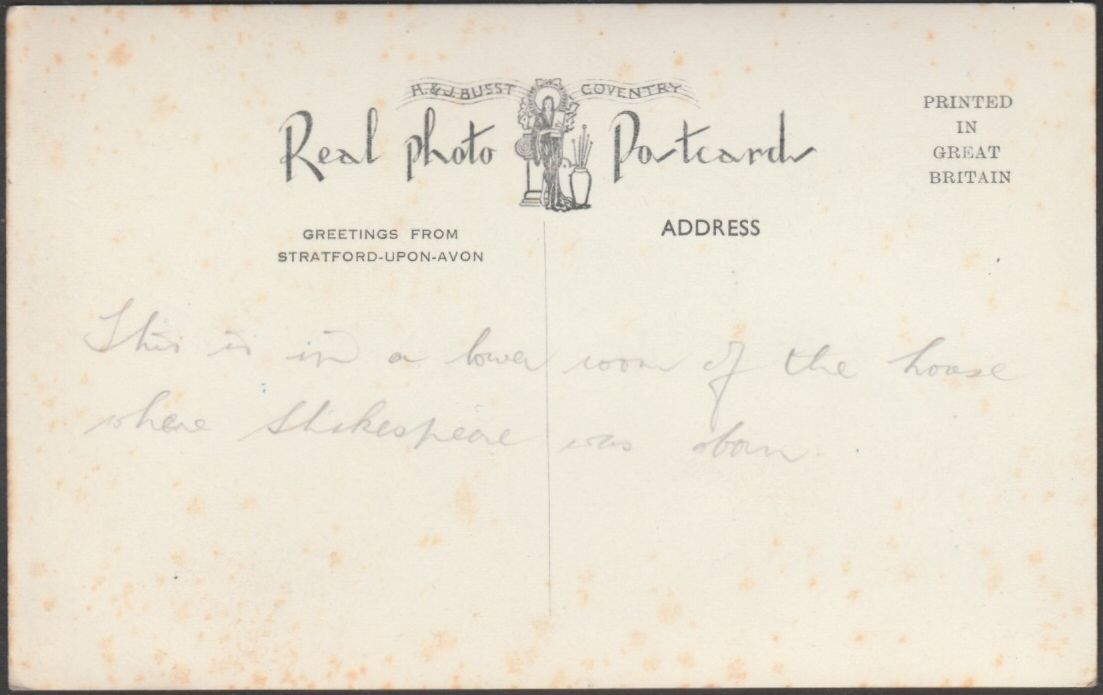 H. & J. BUSST COVENTRY
Real photo Postcards
PRINTED
IN
GREAT
BRITAIN
GREETINGS FROM
STRATFORD-UPON-AVON
ADDRESS
This is in a lower room of the house
where Shakespeare was born.